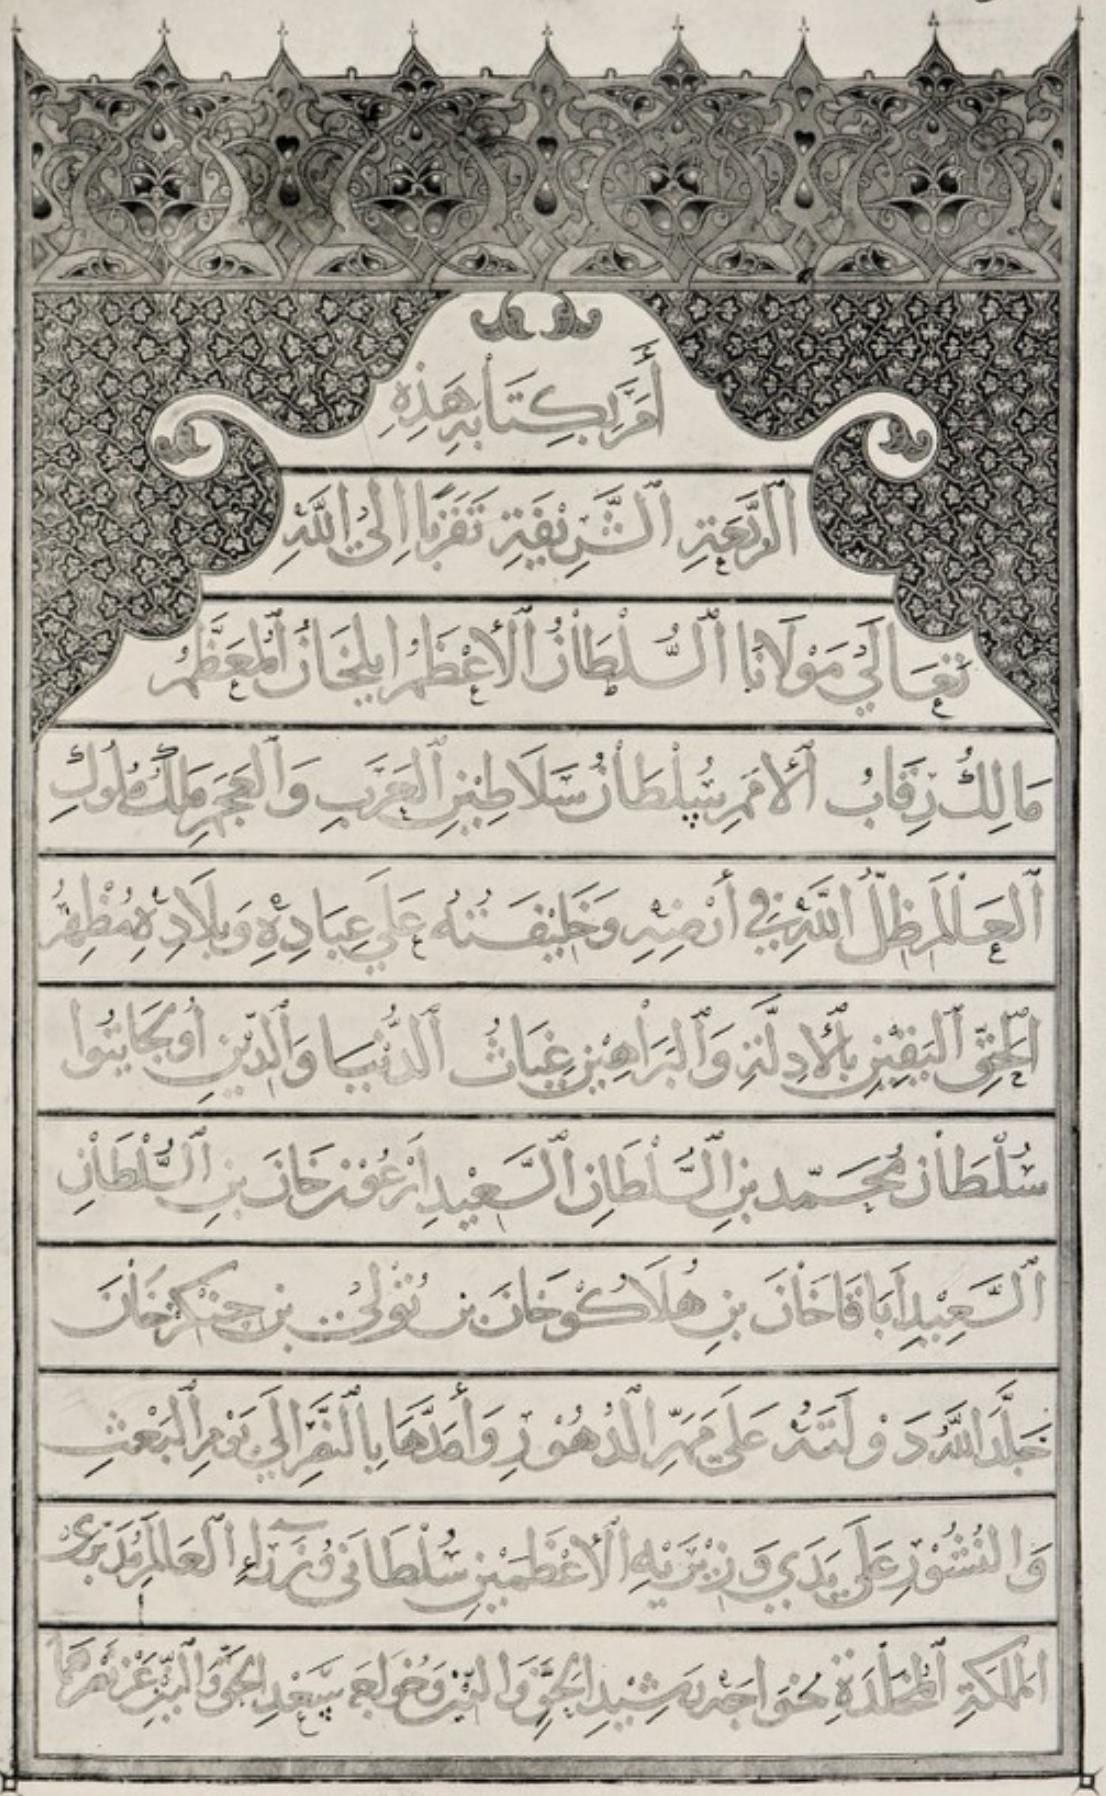 أَمَرَ بِكِتَابَةِ هَذِهِ
الرَّبْعَةِ الشَّرِيْفَةِ تَقَرُّبًا إِلَى اللَّهِ
تَعَالَى مَوْلَانَا السُّلْطَانُ الْأَعْظَمُ ايلخانُ الْمُعَظَّمُ
مَالِكُ رِقَابُ الْأُمَمِ سُلْطَانُ سَلَاطِيْنِ الْعَرَبِ وَالْعَجَمِ مَلِكُ مُلُوكِ
الْعَالَمِ ظِلُّ اللَّهِ فِي أَرْضِهِ وَخَلِيْفَتُهُ عَلَى عِبَادِهِ وَبِلَادِهِ مُظْهِرُ
الْحَقِّ الْيَقِيْنِ بِالْأَدِلَّةِ وَالْبَرَاهِيْنِ غِيَاثُ الدُّنْيَا وَالدِّيْنِ أُوْلجَايتُوا
سُلْطَان مُحَمَّد بْنِ السُّلْطَانِ السَّعِيْدِ اَرْغُوْنَ خَانَ بْنِ السُّلْطَانِ
السَّعِيْدِ اَبَاقَا خَانَ بْنِ هُلَاكُو خَانَ بْن تُوْلي بن جِنْكِزْ خَانَ
خَلَّدَ اللَّهُ دَوْلَتَهُ عَلَى مَمَرِّ الدُّهُوْرِ وَأَمَدَّهَا بِالنَّصْرِ إِلَى يَوْمِ الْبَعْثِ
وَالنُّشُوْرِ عَلَى يَدَي وَزِيْرَيْهِ الْأَعْظَمَيْنِ سُلْطَانَي وُزَرَاءِ الْعَالَمِ مُدَبِّرَي
الْمَمْلَكَةِ خواجه رَشِيْدِ الْحَقِّ وَالدِّيْنِ وَخواجه سَعْدِ الْحَقِّ وَالدِّيْنِ عَزَّ نَصْرُهُمَا